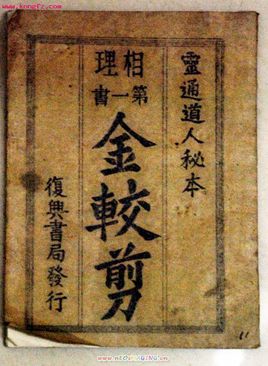 www.kongfz.com
靈通道人秘本
相理
第一書
金較剪
復興書局發行
11